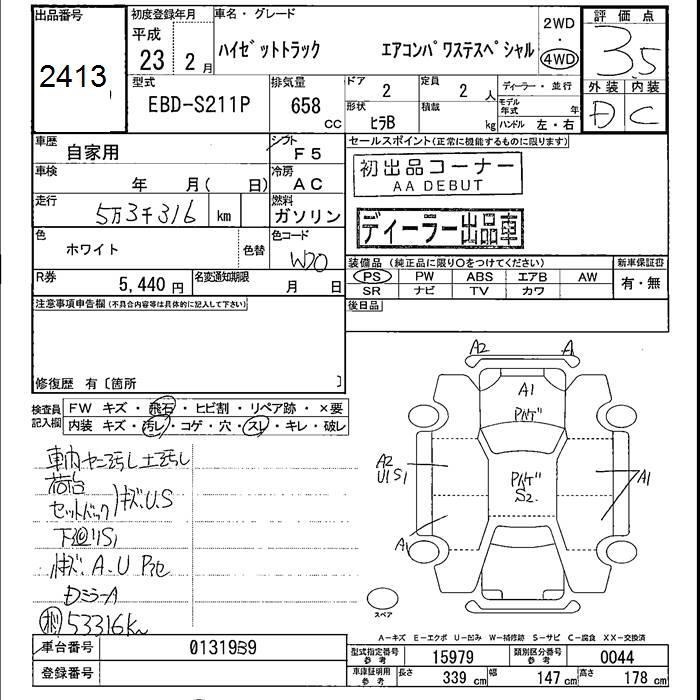 出品番号
2413
初度登録年月
平成
23 2月
車名・グレード
ハイゼットトラック エアコンパワステスペシャル
2WD
・
4WD
評価点
3.5
外装 内装
D C
型式
EBD-S211P
排気量
658
cc
ドア
2
定員
2 人
ディーラー・並行
形状
ヒラB
積載
kg
モデル年式 年
ハンドル 左・右
車歴
自家用
シフト
F5
車検
年 月( 日)
冷房
AC
走行
5万3千316 km
燃料
ガソリン
色
ホワイト
色替
色コード
W20
R券
5,440 円
名変通知期限
月 日
セールスポイント(正常に機能するものに限ります)
初出品コーナー
AA DEBUT
ディーラー出品車
装備品(純正品に限り○をつけてください)
PS PW ABS エアB AW
SR ナビ TV カワ
新車保証書
有・無
後日品
注意事項申告欄(不具合内容等は具体的に記入して下さい)
修復歴 有〔箇所 〕
検査員
記入欄
FW キズ・飛石・ヒビ割・リペア跡・×要
内装 キズ・汚レ・コゲ・穴・スレ・キレ・破レ
車内ヤニ汚し土汚し
荷台
セットバック キズU.S
下廻りS1
キズ A.U
DミラーA
53316Km
A2 A
A1
Pハゲ
A2
U1S1
Pハゲ
S2
A1
A1
スペア
A-キズ E-エクボ U-凹み W-補修跡 S-サビ C-腐食 XX-交換済
車台番号
0131939
登録番号
型式指定番号
参考
15979
類別区分番号
参考
0044
車庫証明用
参考
長さ 339 cm
幅 147 cm
高さ 178 cm